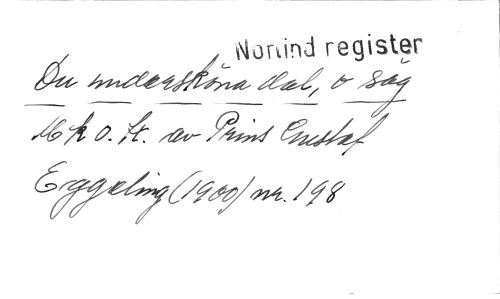 Norlind register
Du undersköna dal, o säg
M k o. t. av Prins Gustaf
Eggeling (1900) nr. 198